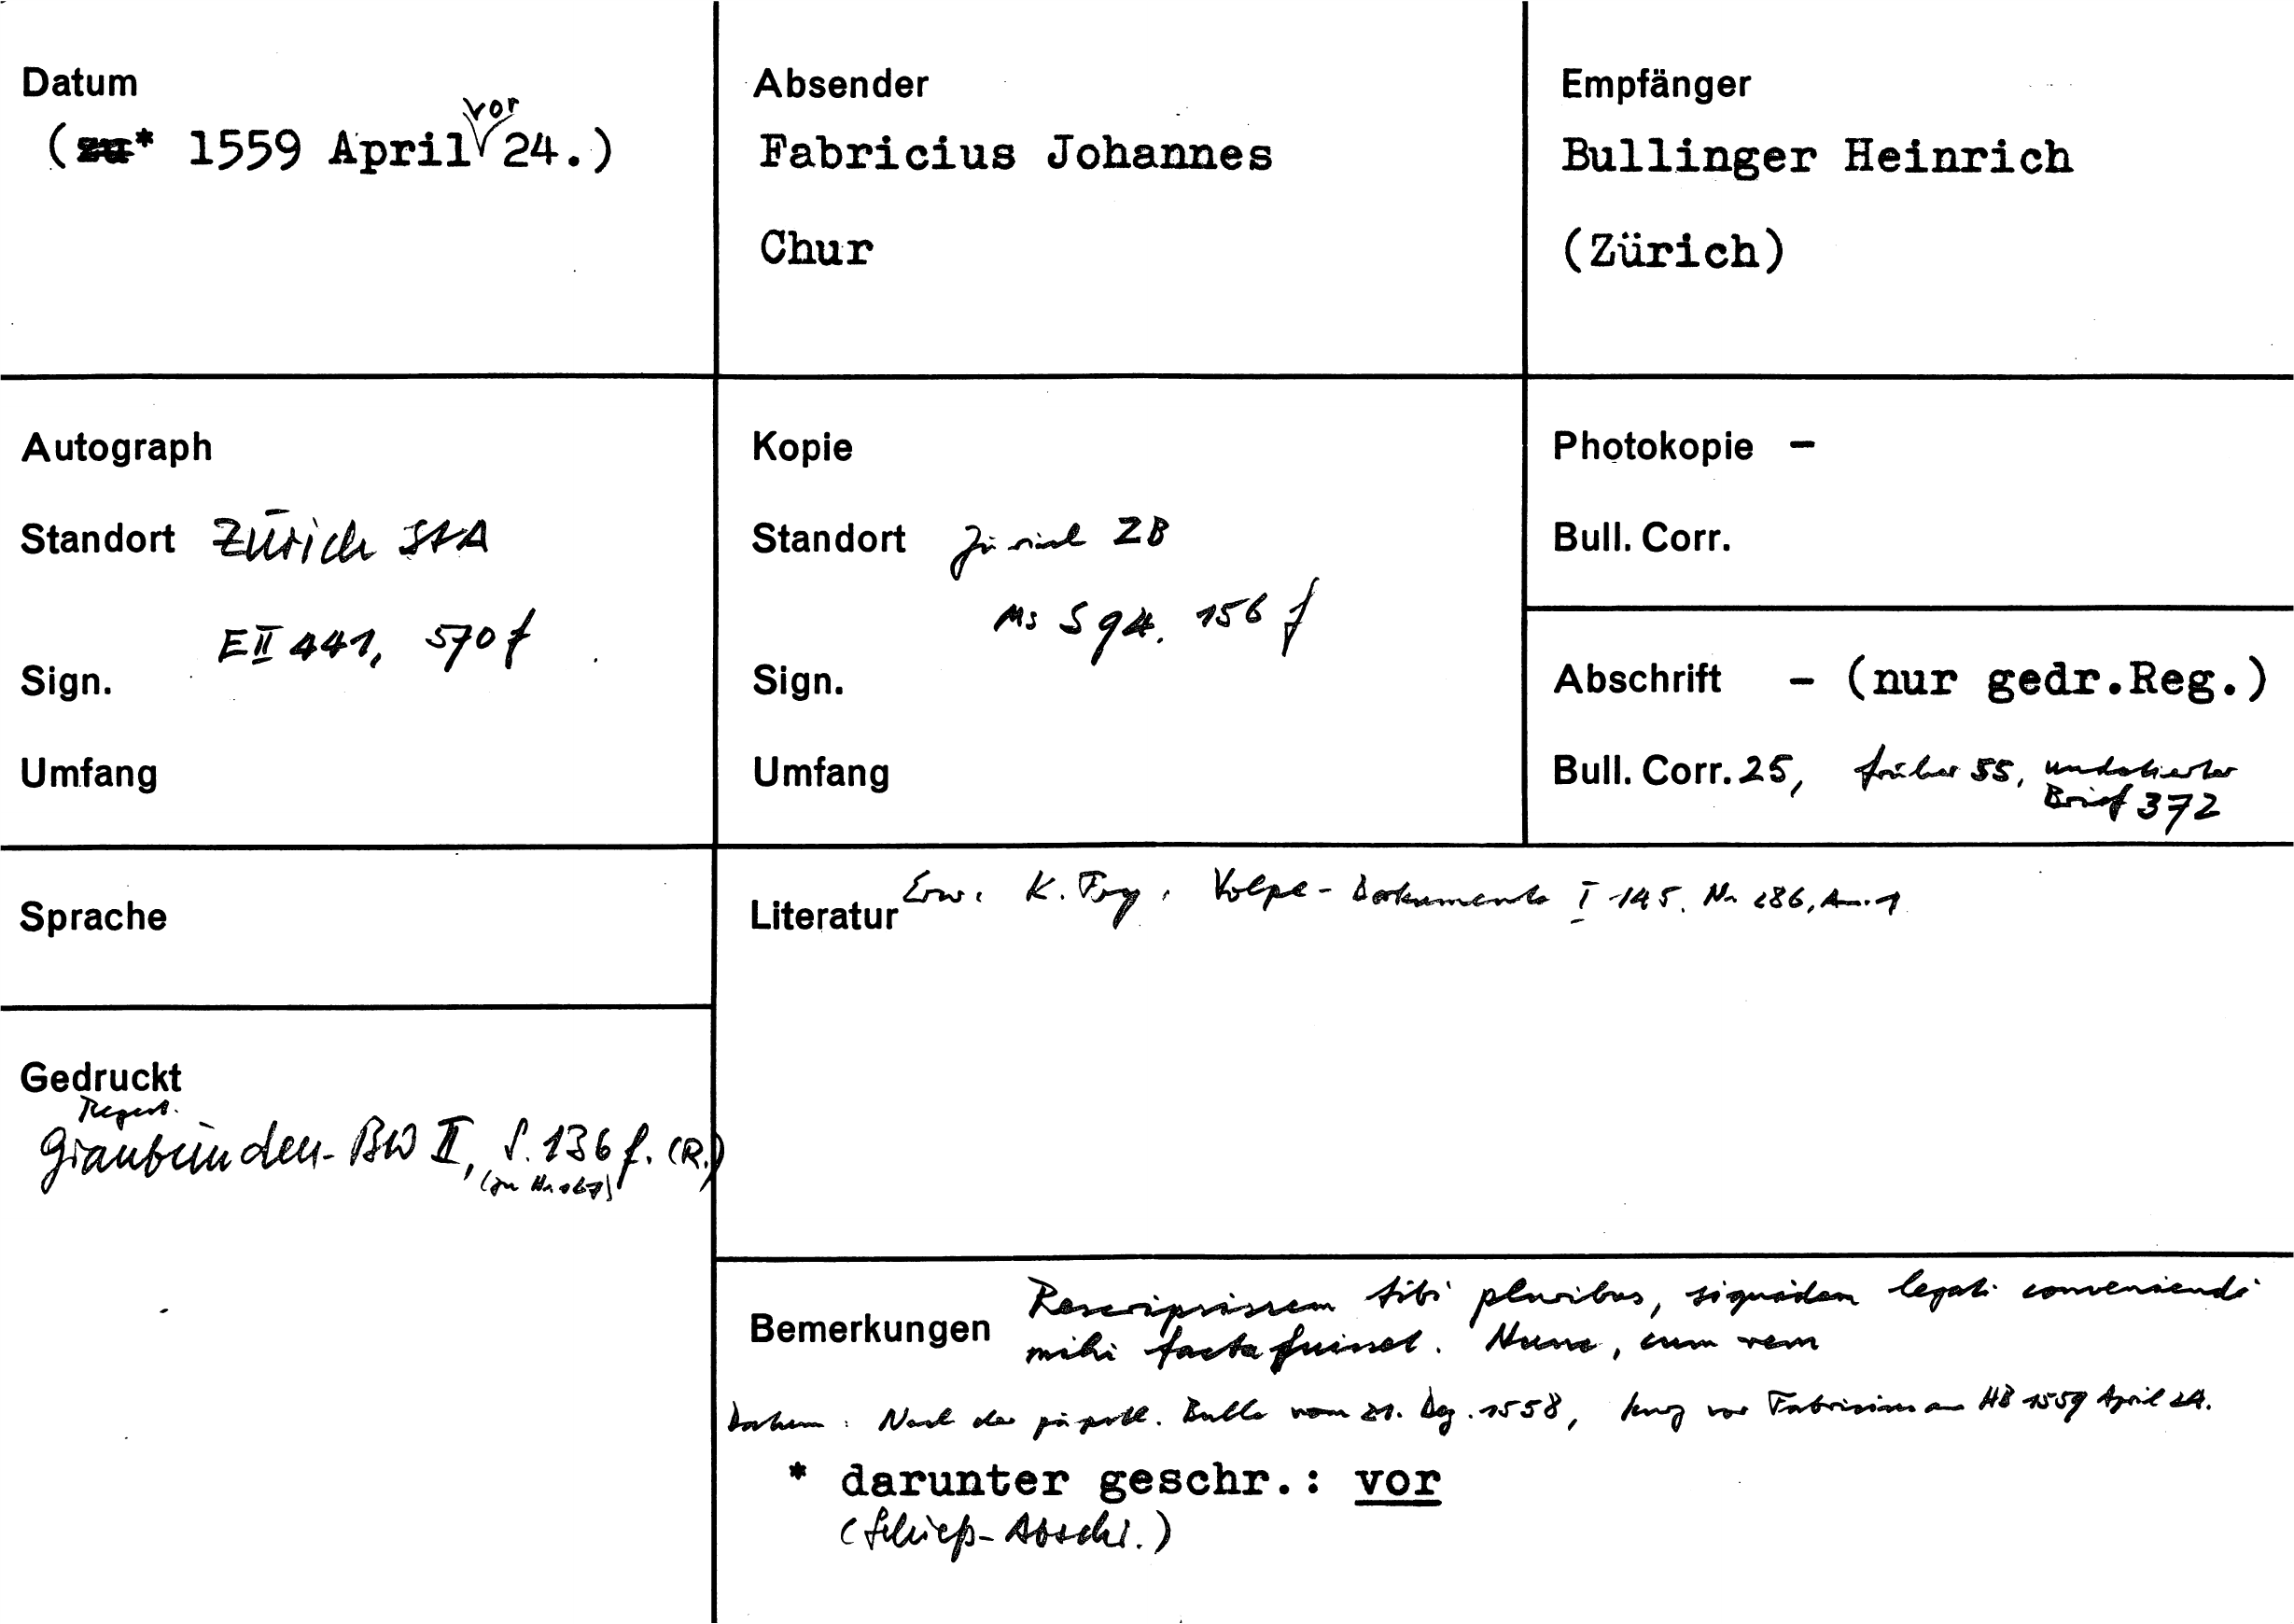 Datum
(zu* 1559 April vor 24.)
Absender
Fabricius Johannes
Chur
Empfänger
Bullinger Heinrich
(Zürich)
Autograph
Standort Zürich StA
E II 441, 570 f
Sign.
Umfang
Kopie
Standort Zürich ZB
Ms S 94. 156 f
Sign.
Umfang
Photokopie –
Bull. Corr.
Abschrift – (nur gedr.Reg.)
Bull. Corr. 25, früher 55, undatierter
Brief 372
Sprache
Literatur Erw. K. Fry, Volpe-Dokumente I 145. Nr 286, An. 1
Gedruckt
Regest.
Graubünden-BW II, S. 136 f. (R.)
Bemerkungen Rescripsissem tibi pluribus, siquidem legati conveniendi
mihi facta fuisset. Nunc, cum rem
Datum: Nach der päpstl. Bulle vom 21. Dez. 1558, kurz vor Fabricius an HB 1559 April 24.
* darunter geschr.: vor
(Schieß-Abschr.)